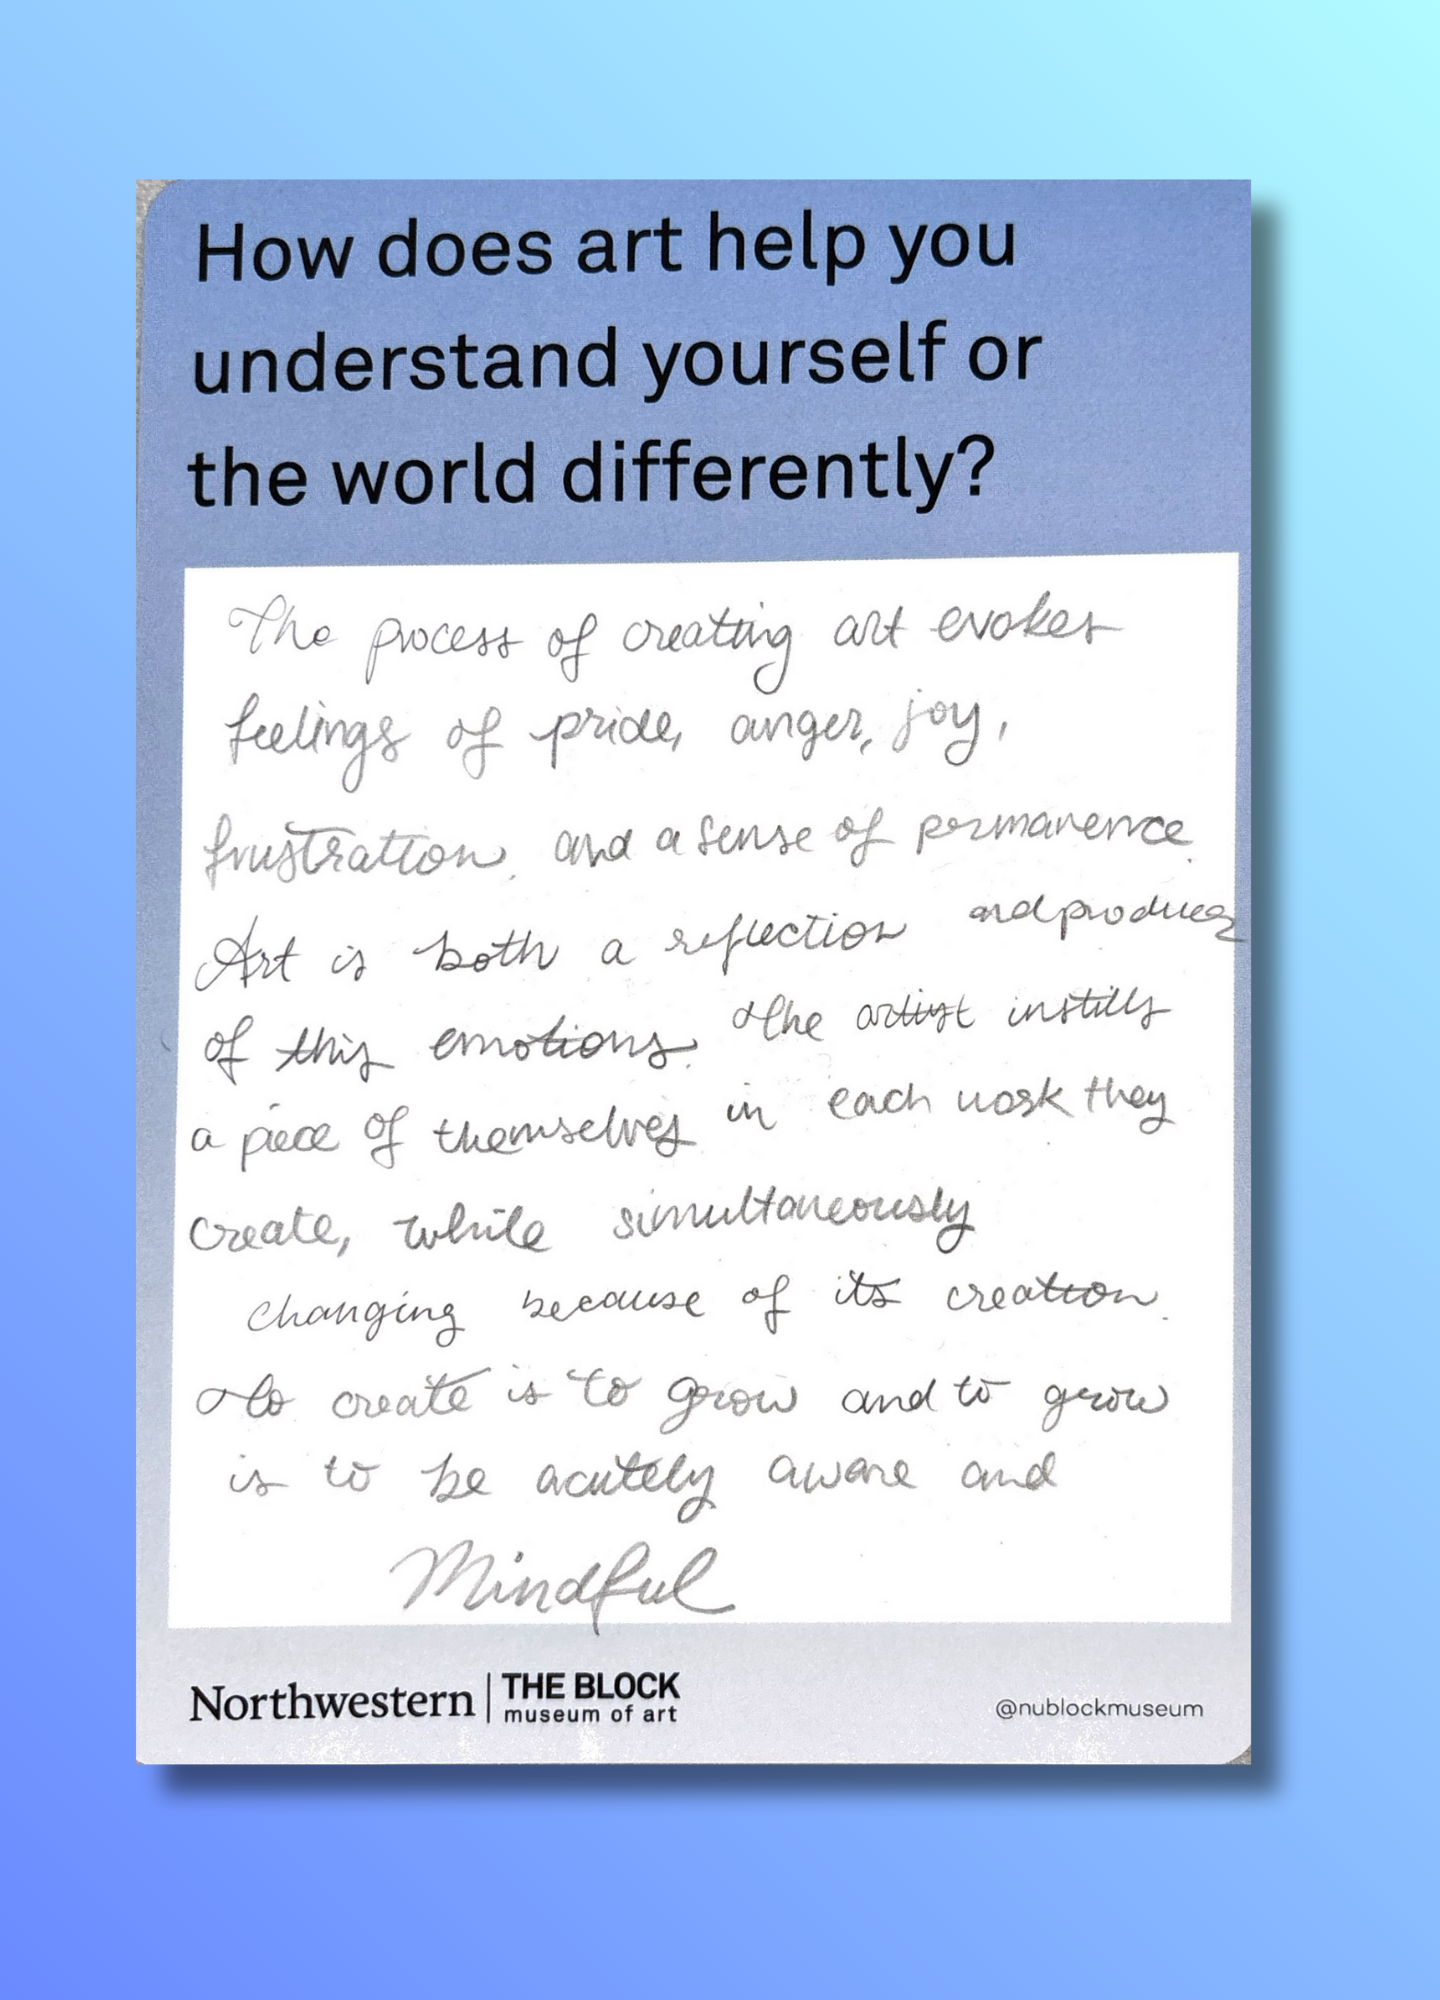 How does art help you
understand yourself or
the world differently?
The process of creating art evokes
feelings of pride, anger, joy,
frustration, and a sense of permanence.
Art is both a reflection and producer
of this emotions. The artist instills
a piece of themselves in each work they
create, while simultaneously
changing because of its creation.
To create is to grow and to grow
is to be acutely aware and
Mindful
Northwestern | THE BLOCK
museum of art
@nublockmuseum